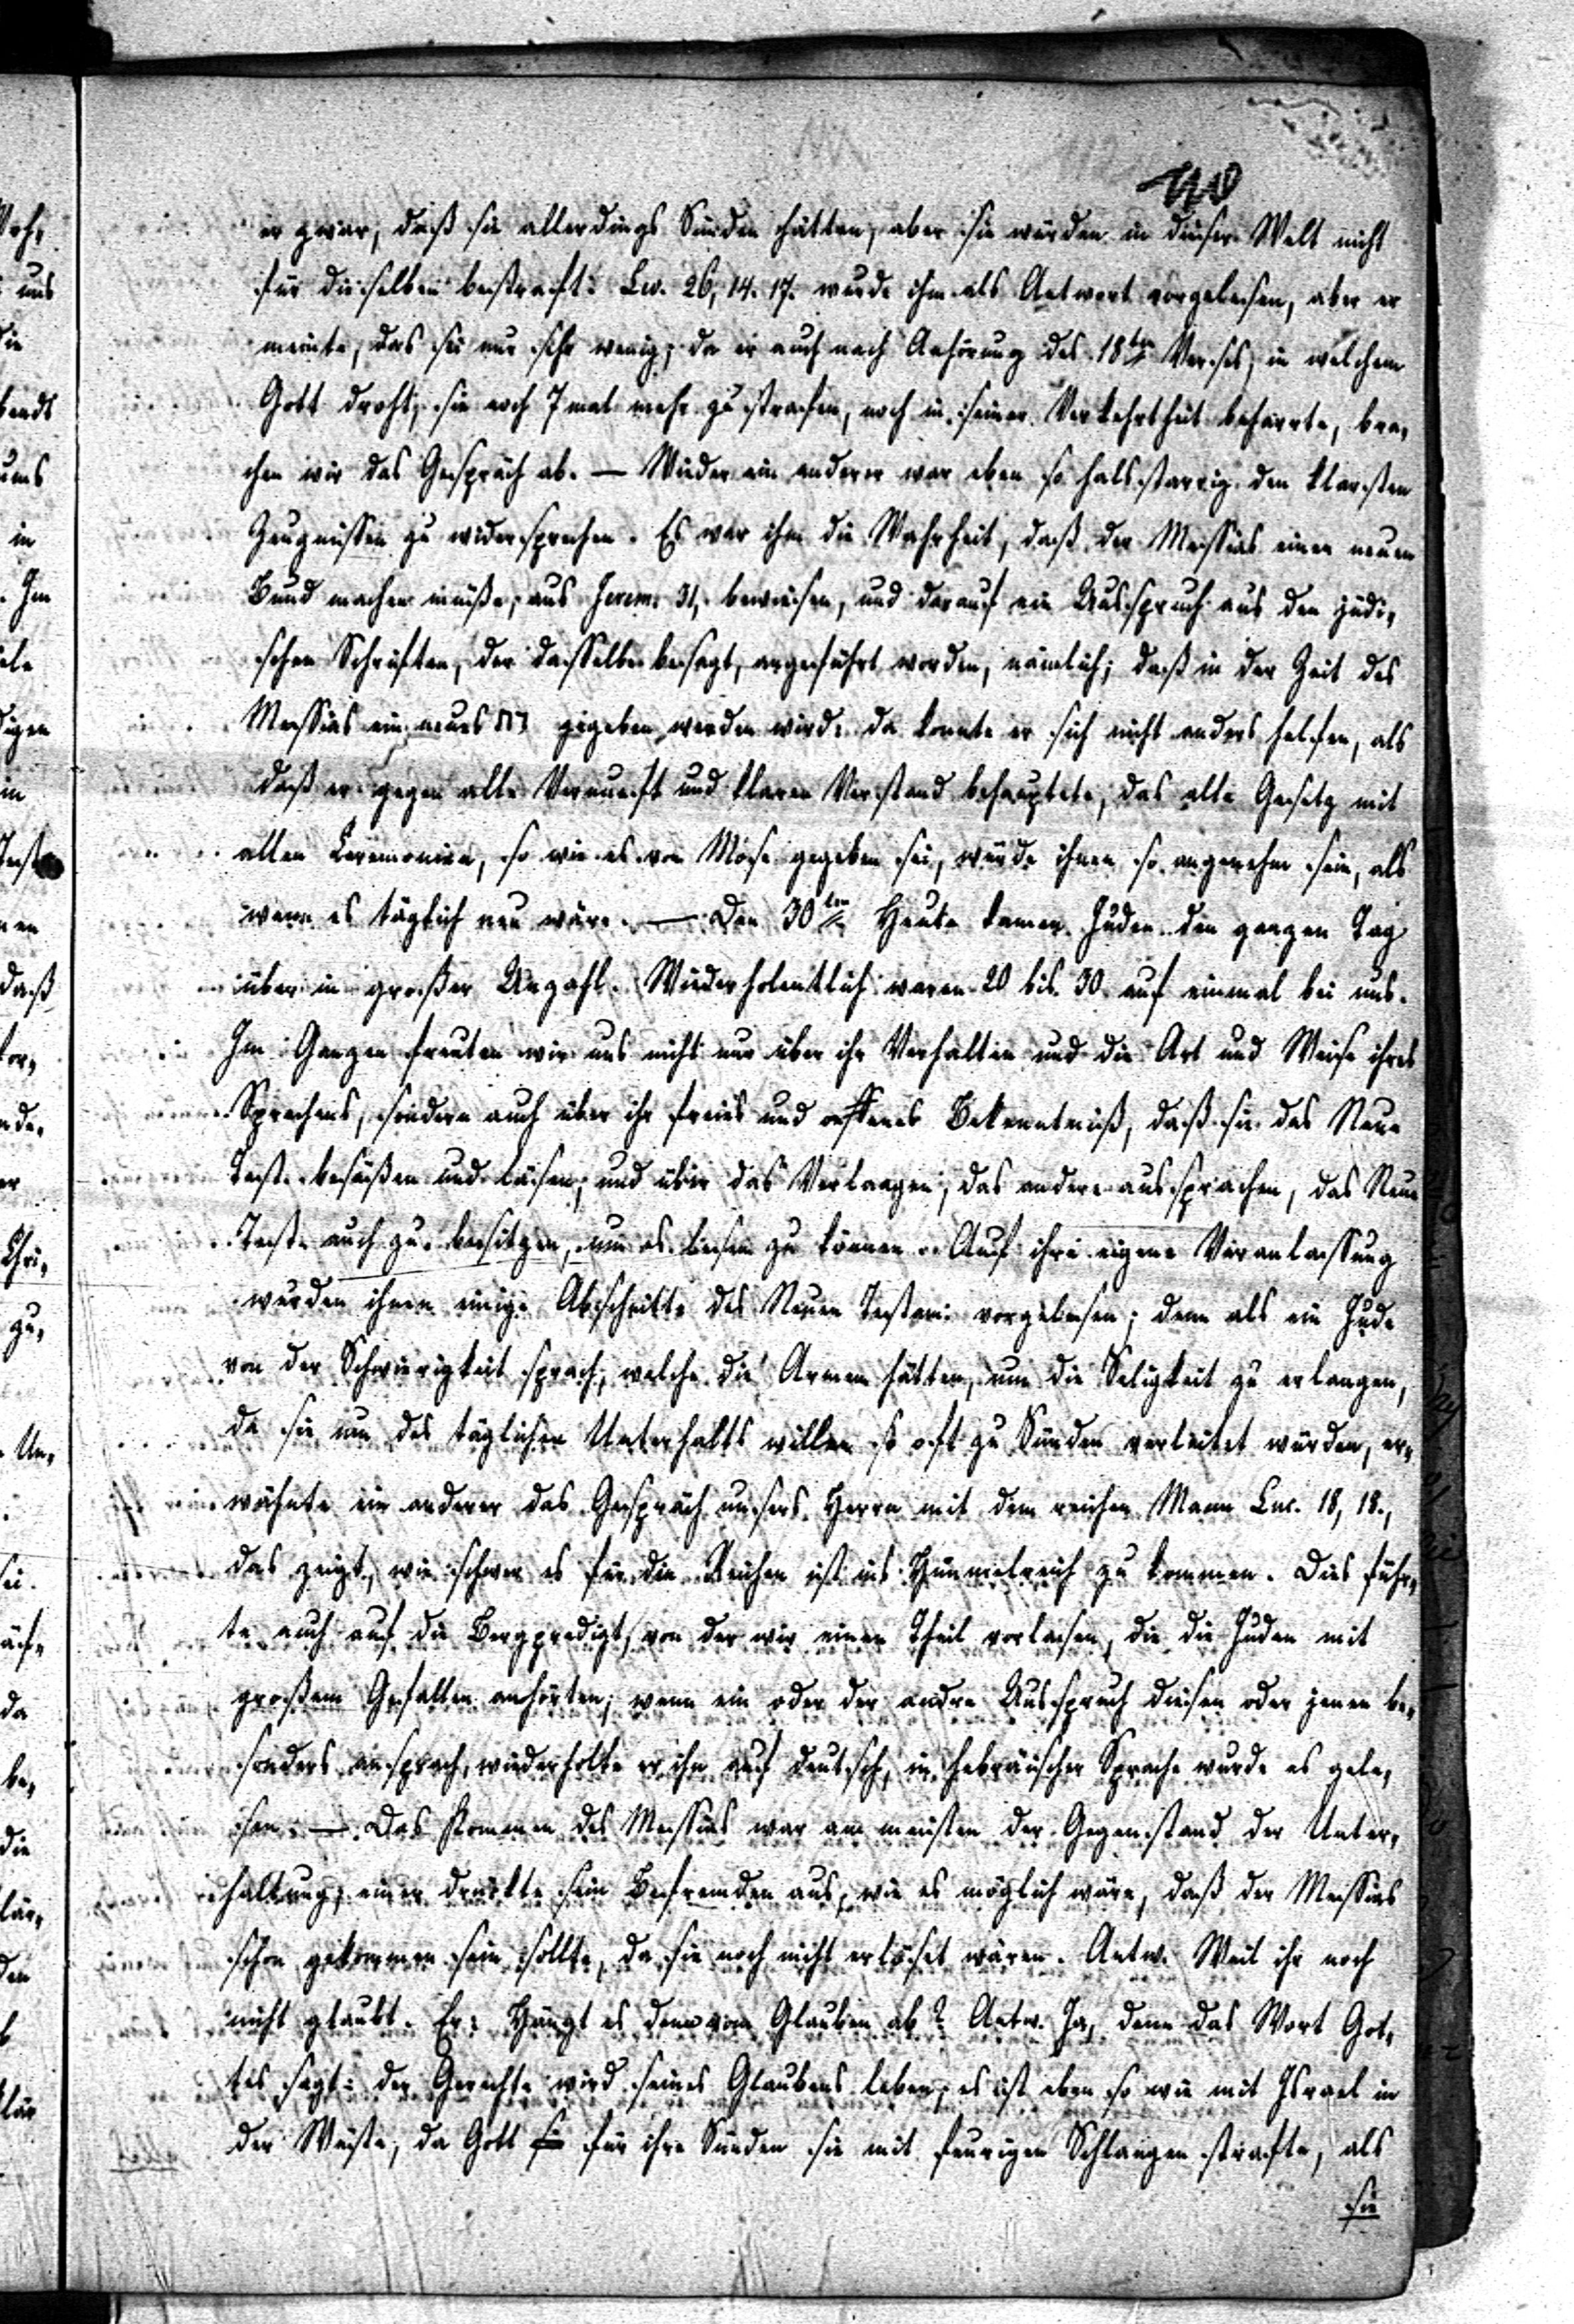 110
er zwar, daß sie allerdings Sünden hätten, aber sie würden in dieser Welt nicht
für dieselben bestraft. Lev. 26, 14. 17. wurde ihm als Antwort vorgelesen, aber er
meinte, das sei nur sehr wenig; da er auch nach Anhörung des 18ten Verses, in welchem
Gott droht, sie noch 7 mal mehr zu strafen, noch in seiner Verkehrtheit beharrte, bra-
chen wir das Gespräch ab. — Wieder ein anderer war eben so halsstarrig den klarsten
Zeugnissen zu widersprechen. Es war ihm die Wahrheit, daß der Messias einen neuen
Bund machen müße, aus Jerem. 31, bewiesen, und darauf ein Ausspruch aus den jüdi-
schen Schriften, der dasselbe besagt, angeführt worden, nämlich; daß in der Zeit des
Messias ein neues gegeben werden wird: da konnte er sich nicht anders helfen, als
daß er gegen alle Vernunft und klaren Verstand behauptete, das alte Gesetz mit
allen Ceremonien, so wie es von Mose gegeben sei, würde ihnen so angenehm sein, als
wenn es täglich neu wäre. — Den 30ten Heute kamen Juden den ganzen Tag
über in großer Anzahl. Wiederholentlich waren 20 bis 30 auf einmal bei uns.
Im Ganzen freuten wir uns nicht nur über ihr Verhalten und die Art und Weise ihres
Sprechens, sondern auch über ihr freies und offenes Bekenntniß, daß sie das Neue
Test. besäßen und läsen; und über das Verlangen, das andere aussprachen, das Neue
Test. auch zu besitzen, um es lesen zu können. Auf ihre eigene Veranlassung
wurden ihnen einige Abschnitte des Neuen Testam. vorgelesen; denn als ein Jude
von der Schwierigkeit sprach, welche die Armen hätten, um die Seligkeit zu erlangen,
da sie um des täglichen Unterhalts willen so oft zu Sünden verleitet würden, er-
wähnte ein anderer das Gespräch unsers Herrn mit dem reichen Mann Luc. 18, 18.,
das zeigt, wie schwer es für die Reichen ist ins Himmelreich zu kommen. Dies führ-
te auch auf die Bergpredigt, von der wir einen Theil vorlasen, die die Juden mit
großem Gefallen anhörten; wenn ein oder der andre Ausspruch diesen oder jenen be-
sonders ansprach, wiederholte er ihn auf deutsch, in hebräischer Sprache wurde es gele-
sen. — Das Kommen des Messias war am meisten der Gegenstand der Unter-
haltung; einer drückte sein Befremden aus, wie es möglich wäre, daß der Messias
schon gekommen sein sollte, da sie noch nicht erlöset wären. Antw. Weil ihr noch
nicht glaubt. Er: Hängt es denn vom Glauben ab? Antw. Ja, denn das Wort Got-
tes sagt: der Gerechte wird seines Glaubens leben; es ist eben so wie mit Israel in
der Wüste, da Gott für ihre Sünden sie mit feurigen Schlangen strafte, als
sie